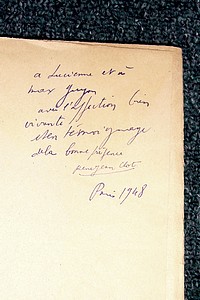 a Lucienne et à
max Guyon
avec l'affection bien
vivante
et en témoignage
de la bonne présence
René Jean Clot
Paris 1948